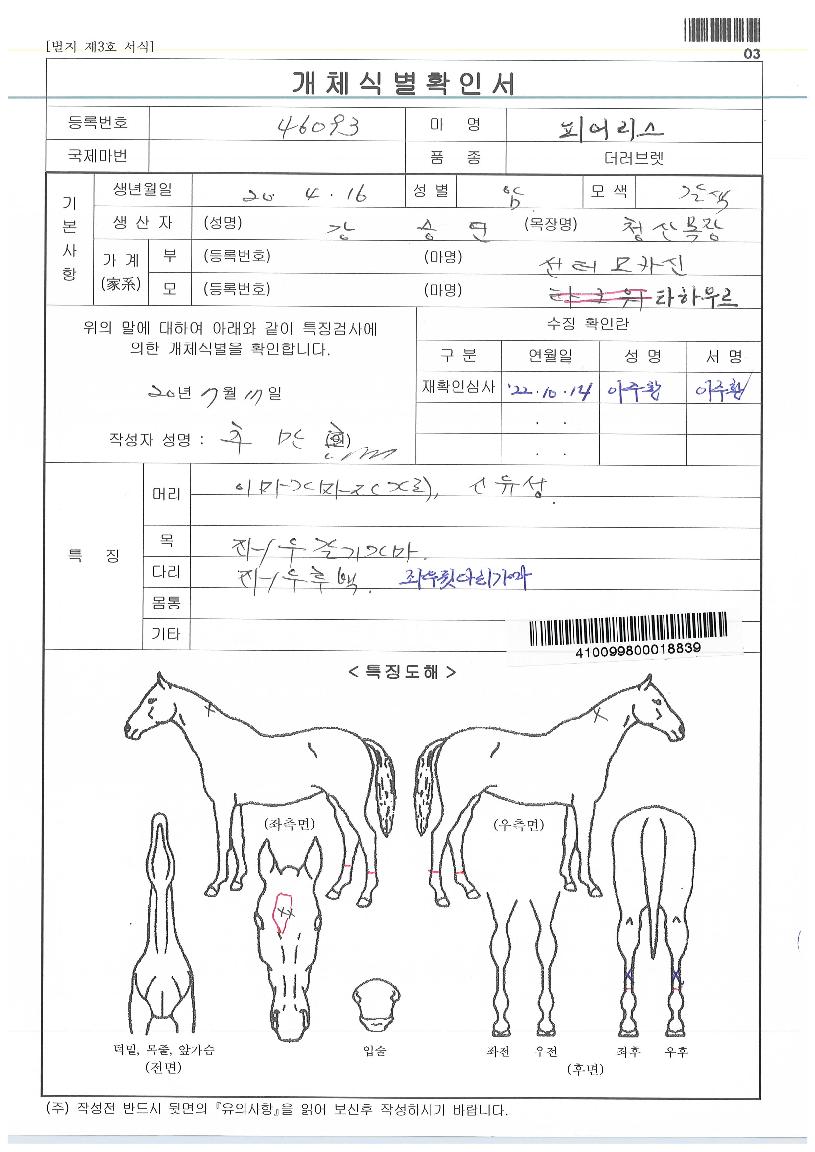 [별지 제3호 서식]
03
개체식별확인서
등록번호 46093 마 명 피어리스
국제마번 품 종 더러브렛
기본사항
생년월일 20 4 . 16 성별 암 모색 갈색
생산자 (성명) 강 승 연 (목장명) 청산목장
가계 (家系) 부 (등록번호) (마명) 샌터 모카진
모 (등록번호) (마명) 타하우르
위의 말에 대하여 아래와 같이 특징검사에
의한 개체식별을 확인합니다.
20년 7월 17일
작성자 성명 :
수징 확인란
구 분 연월일 성 명 서 명
재확인심사 '22.10.14 이주환 이주환
. .
. .
특 징
머리
목
다리 좌우후백. 좌우뒷다리가마
몸통
기타
410099800018839
<특징도해>
(좌측면) (우측면)
턱밑, 목줄, 앞가슴 입술 좌전 우전 좌후 우후
(전면) (후면)
(주) 작성전 반드시 뒷면의 『유의사항』을 읽어 보신후 작성하시기 바랍니다.